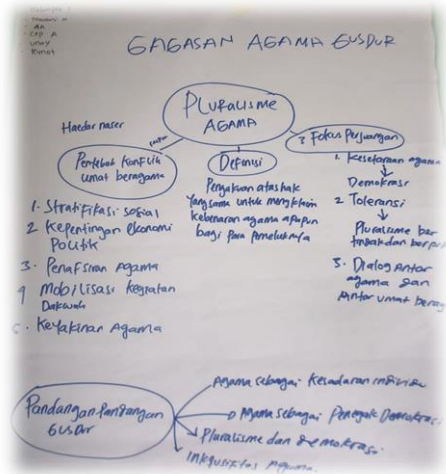 AA
GAGASAN AGAMA GUSDUR
PLURALISME
AGAMA
Haedar naser
Penyebab Konflik
umat beragama
1. Stratifikasi sosial
2 Kepentingan ekonomi
Politik
3. Penafsiran Agama
4 Mobilisasi kegiatan
Dakwah
5. Keyakinan Agama
Definisi
Pengakuan atas hak
yang sama untuk mengklaim
kebenaran agama apapun
bagi para pemeluknya
3 Fokus Perjuangan
1. Kesetaraan agama
Demokrasi
2 Toleransi
Pluralisme ber
tindak dan berpi
3. Dialog Antar
agama dan
Antar umat berag
Pandangan Pandangan
GUSDUR
Agama sebagai Kesadaran individu
Agama sebagai Penegak Demokrasi
Pluralisme dan demokrasi
Inklusifitas Agama.